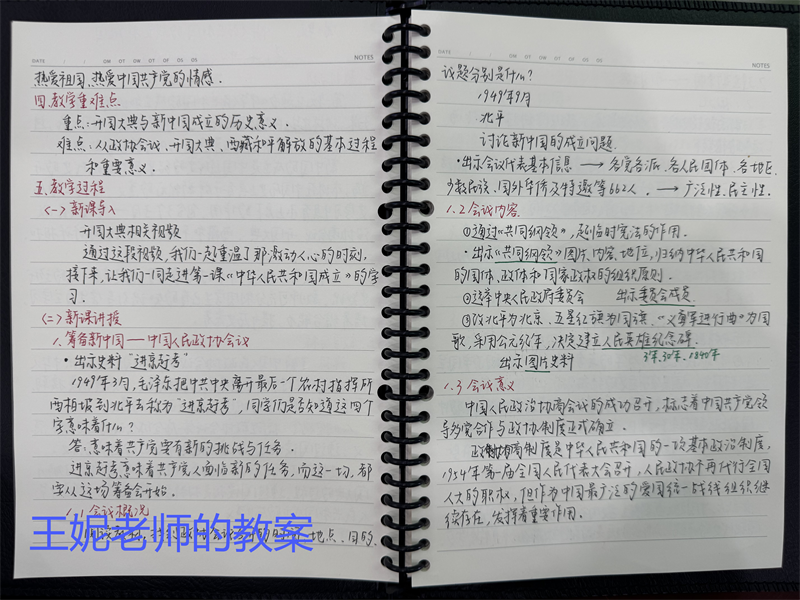 DATE / / OM OT OW OT OF OS OS NOTES
热爱祖国、热爱中国共产党的情感.
四.教学重难点.
重点:开国大典与新中国成立的历史意义.
难点:从政协会议、开国大典、西藏和平解放的基本过程
和重要意义.
五.教学过程
<一>新课导入
开国大典相关视频
通过这段视频,我们一起重温了那激动人心的时刻,
接下来,让我们一同走进第一课《中华人民共和国成立》的学
习.
<二>新课讲授
1.筹备新中国——中国人民政协会议
·出示史料“进京赶考”
1949年3月,毛泽东把中共中央离开最后一个农村指挥所
西柏坡到北平去称为“进京赶考”,同学们是否知道这四个
字意味着什么?
答:意味着共产党要有新的挑战与任务.
进京赶考意味着共产党人面临新的任务,而这一切,都
要从这场筹备会开始.
1.1会议概况
地点、目的、
王妮老师的教案
DATE / / OM OT OW OT OF OS OS NOTES
议题分别是什么?
1949年9月
北平
讨论新中国的成立问题.
·出示会议代表基本信息 → 各党各派、各人民团体、各地区、
少数民族、国外华侨及特邀等662人. → 广泛性、民主性.
1.2会议内容.
①通过《共同纲领》,起临时宪法的作用.
·出示《共同纲领》图片、内容、地位,归纳中华人民共和国
的国体、政体和国家政权的组织原则.
②选举中央人民政府委员会 出示委员会成员.
③改北平为北京、五星红旗为国旗、《义勇军进行曲》为国
歌,采用公元纪年,决定建立人民英雄纪念碑.
出示图片史料 3年.30年.1840年
1.3会议意义
中国人民政治协商会议的成功召开,标志着中国共产党领
导多党合作与政协制度正式确立.
政治协商制度是中华人民共和国的一项基本政治制度,
1954年第一届全国人民代表大会召开,人民政协不再代行全国
人大的职权,但作为中国最广泛的爱国统一战线组织继
续存在,发挥着重要作用.